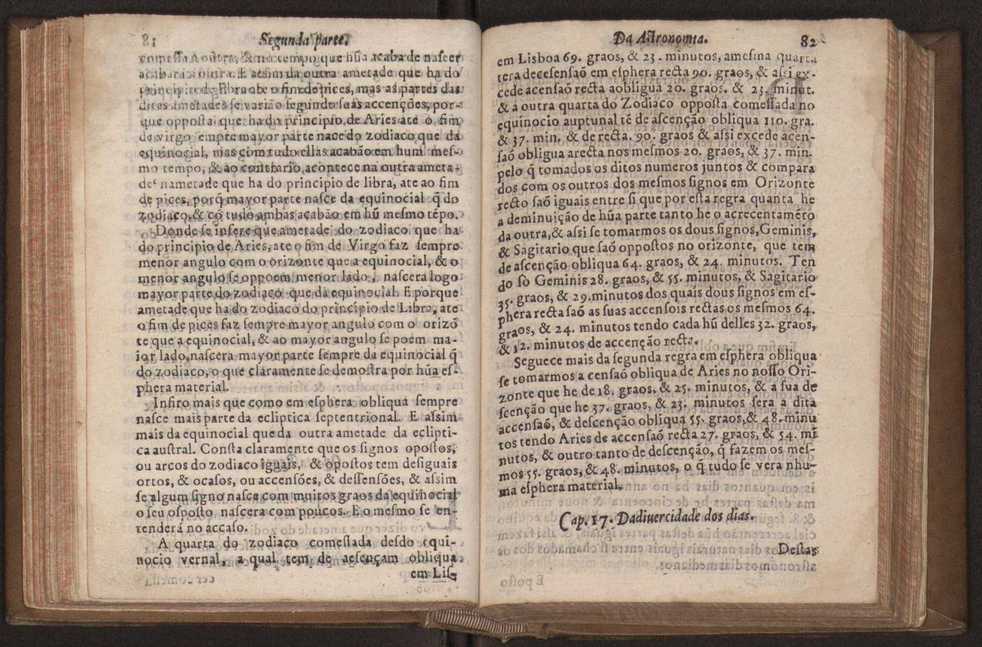 81 Segunda parte.
comessa A outra, & no tempo que hũa acaba de nascer
acabara a outra. E assim da outra ametade que ha do
principio de libra ate o fim de pices, mas as partes das
dites ametades se varião segundo suas accenções, por-
que opposta que ha do principio de Aries ate o fim
de virgo sempre mayor parte nace do zodiaco que da
equinocial, mas com tudo ellas acabão em hum mes-
mo tempo, & ao contrario acontece na outra ameta-
de nametade que ha do principio de libra, ate ao fim
de pices, porq̃ mayor parte nasce da equinocial q̃ do
zodiaco, & cõ tudo ambas acabão em hũ mesmo tẽpo.
Donde se infere que ametade do zodiaco que ha
do principio de Aries, ate o fim de Virgo faz sempre
menor angulo com o orizonte que a equinocial, & o
menor angulo se oppoem menor lado, nascera logo
mayor parte do zodiaco que da equinocial. E porque
ametade que ha do zodiaco do principio de Libra, ate
o fim de pices faz sempre mayor angulo com o orizõ
te que a equinocial, & ao mayor angulo se poem ma-
ior lado, nascera mayor parte sempre da equinocial q̃
do zodiaco, o que claramente se demostra por hũa es-
phera material.
Infiro mais que como em esphera obliqua sempre
nasce mais parte da ecliptica septentrional. E assim
mais da equinocial que da outra ametade da eclipti-
ca austral. Consta claramente que os signos opostos,
ou arcos do zodiaco iguais, & opostos tem desiguais
ortos, & ocasos, ou accensões, & dessensões, & assim
se algum signo nasce com muitos graos da equinocial
o seu osposto nascera com poucos. E o mesmo se en-
tenderá no accaso.
A quarta do zodiaco comessada desdo equi-
nocio vernal, a qual tem de asençam obliqua
em Lis-
Da Astronomia. 82
em Lisboa 69. graos, & 23. minutos, a mesma quarta
tera de cesensaõ em esphera recta 90. graos, & assi ex-
cede acensaõ recta a obligua 20. graos. & 23. minut.
& a outra quarta do Zodiaco opposta comessada no
equinocio auptunal té de ascenção obliqua 110. gra.
& 37. min. & de recta. 90. graos & assi excede acen-
saõ obligua a recta nos mesmos 20. graos, & 37. min.
pelo q̃ tomados os ditos numeros juntos & compara
dos com os outros dos mesmos signos em Orizonte
recto saõ iguais entre si que por esta regra quanta he
a deminuição de hũa parte tanto he o acrecentamẽto
da outra, & assi se tomarmos os dous signos, Geminis,
& Sagitario que saõ oppostos no orizonte, que tem
de ascenção obliqua 64. graos, & 24. minutos. Ten
do so Geminis 28. graos, & 55. minutos, & Sagitario
35. graos, & 29. minutos dos quais dous signos em es-
phera recta saõ as suas accensois rectas os mesmos 64.
graos, & 24. minutos tendo cada hũ delles 32. graos,
& 12. minutos de accenção recta.
Seguece mais da segunda regra em esphera obliqua
se tomarmos a censaõ obliqua de Aries no nosso Ori-
zonte que he de 18. graos. & 25. minutos, & a sua de
scenção que he 37. graos, & 23. minutos sera a dita
accensaõ, & descenção obliqua 55. graos, & 48. minu
tos tendo Aries de accensaõ recta 27. graos, & 54. mi
nutos, & outro tanto de descenção, q̃ fazem os mes-
mos 55. graos, & 48. minutos, o q̃ tudo se vera nhu-
ma esphera material.
Cap. 17. Da diuercidade dos dias.
Destas